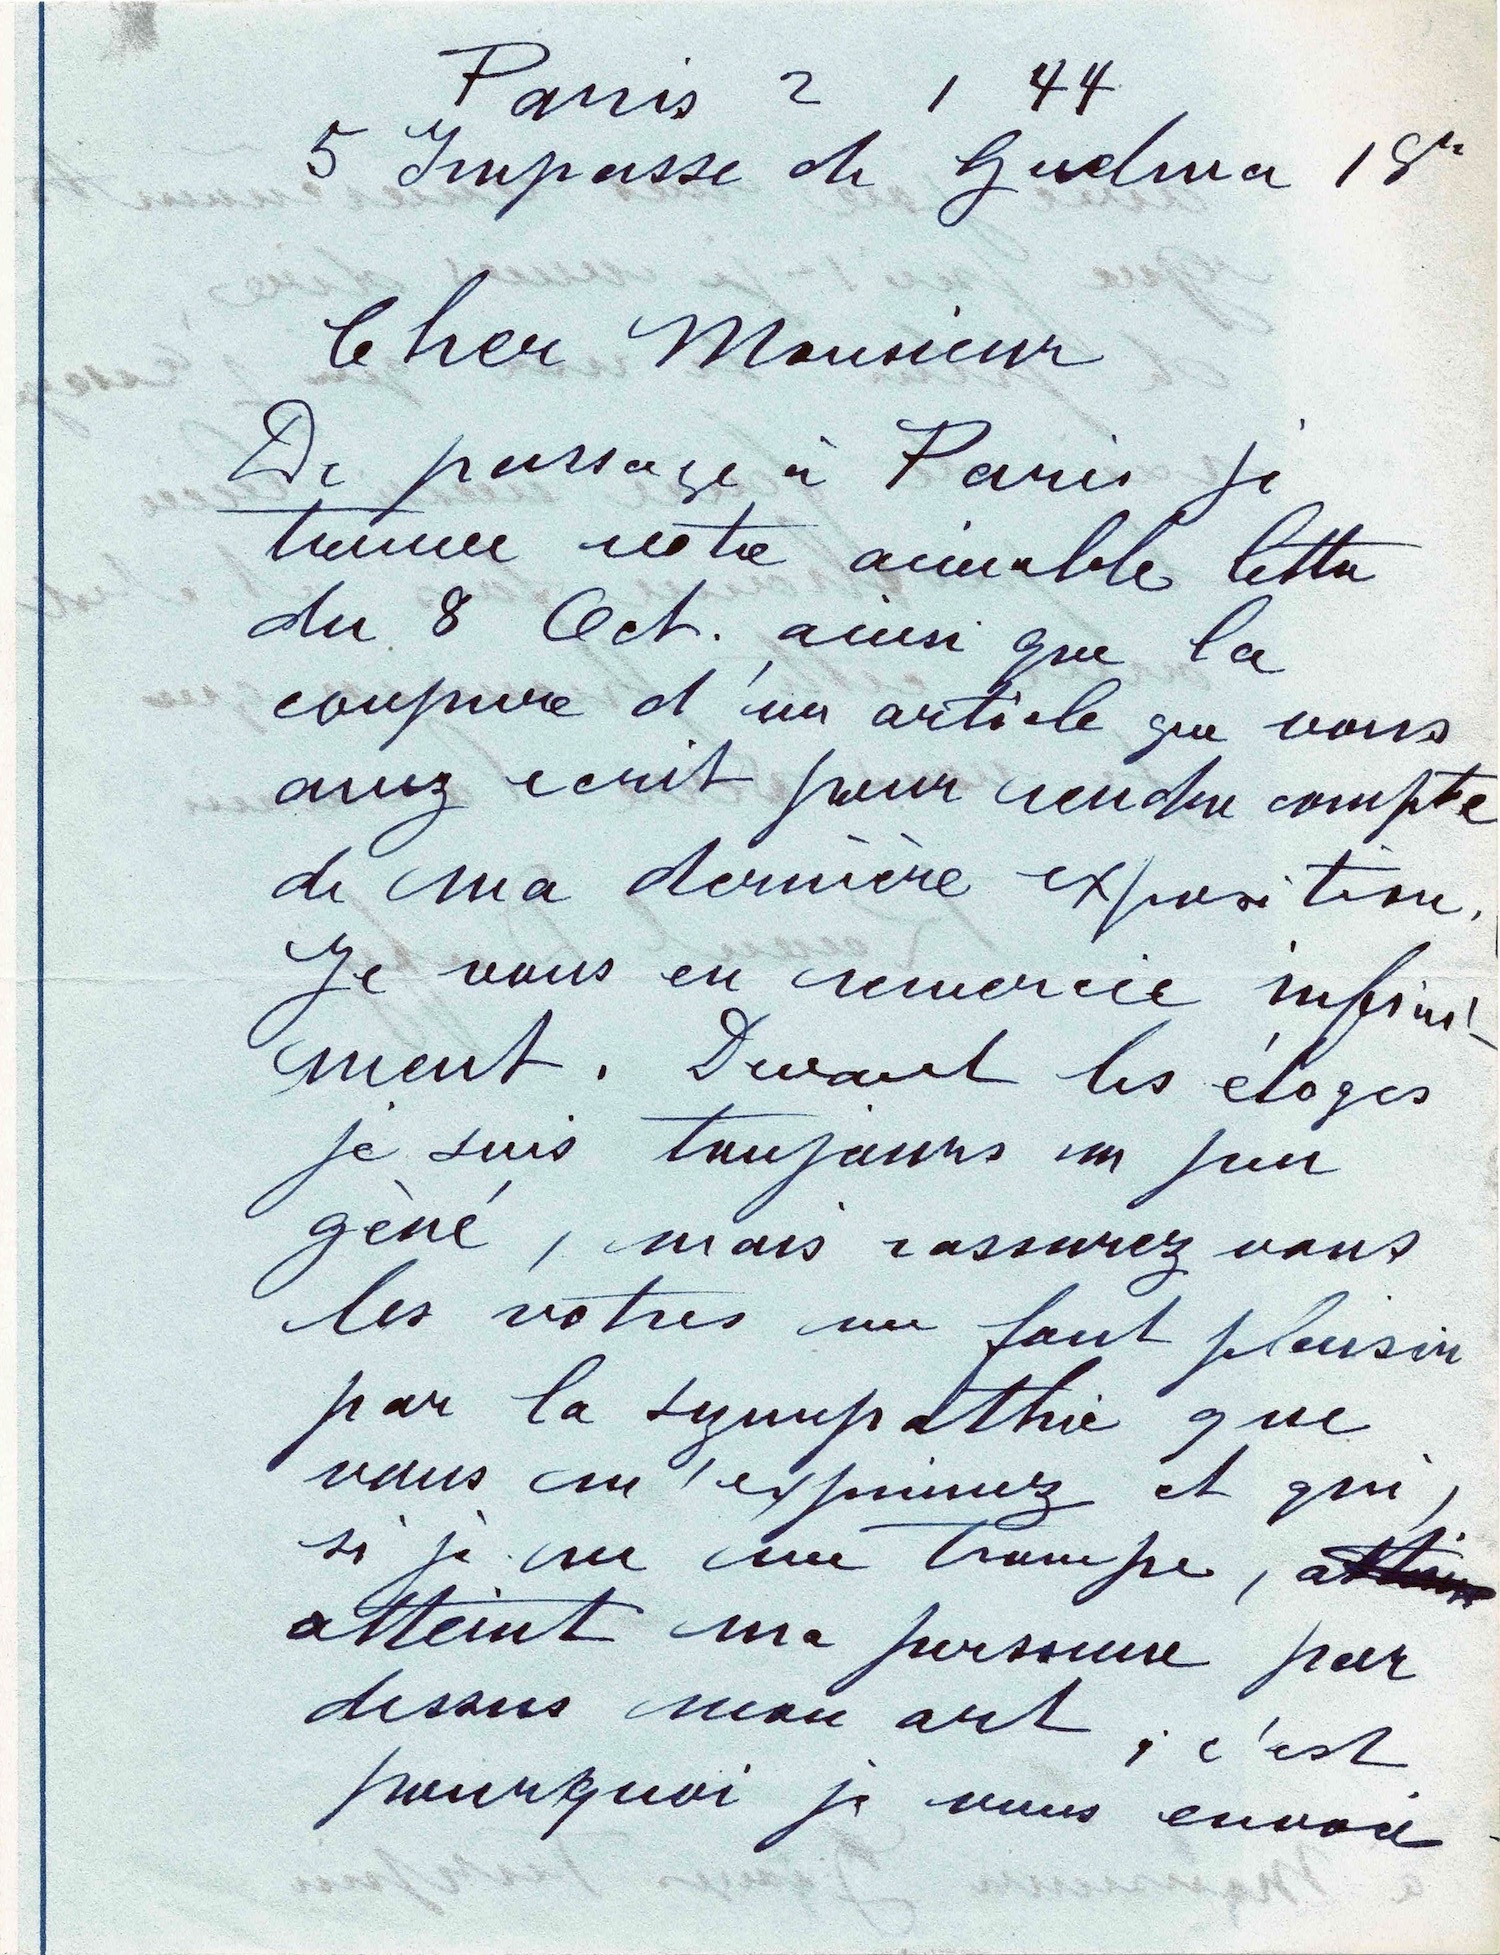 Paris 2 1 44
5 Impasse de Guelma 18e
Cher Monsieur
De passage à Paris je
trouve votre aimable lettre
du 8 Oct. ainsi que la
coupure d'un article que vous
avez ecrit pour rendre compte
de ma dernière exposition.
Je vous en remercie infini-
ment. Devant les éloges
je suis toujours un peu
gèné, mais rassurez vous
les votres me font plaisir
par la sympathie que
vous m'exprimez et qui,
si je ne me trompe,
atteint ma personne par
dessus mon art, c'est
pourquoi je vous envoie